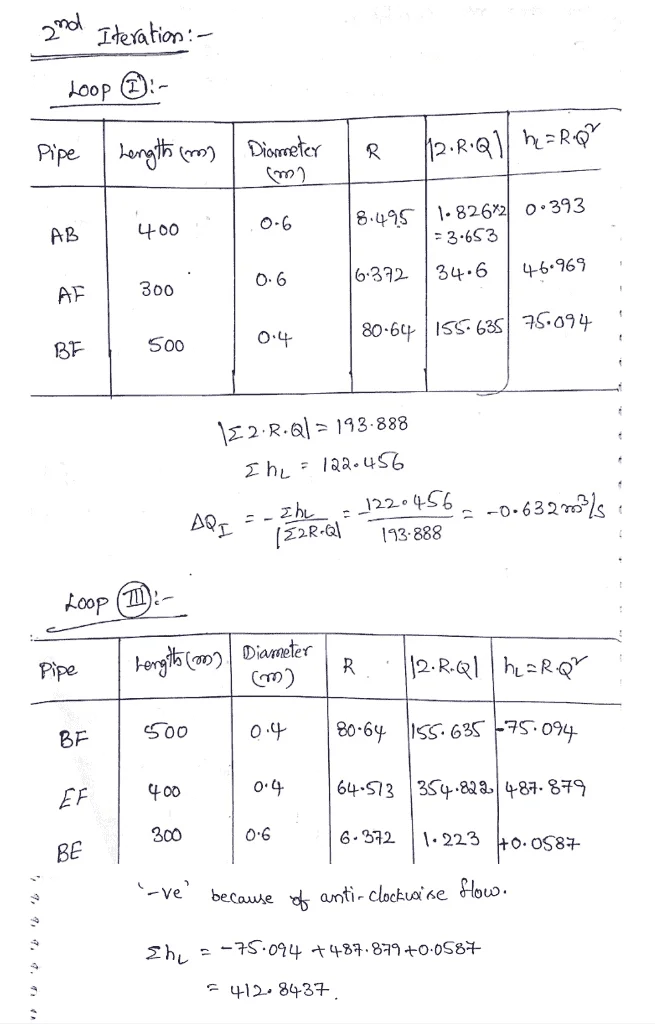 2nd Iteration:-
Loop (I):-
Pipe | Length (m) | Diameter (m) | R | |2.R.Q| | hL = R.Q²
AB | 400 | 0.6 | 8.495 | 1.826×2 = 3.653 | 0.393
AF | 300 | 0.6 | 6.372 | 34.6 | 46.969
BF | 500 | 0.4 | 80.64 | 155.635 | 75.094
|Σ2.R.Q| = 193.888
ΣhL = 122.456
ΔQI = -ΣhL / |Σ2R.Q| = 122.456 / 193.888 = -0.632 m³/s
Loop (III):-
Pipe | Length (m) | Diameter (m) | R | |2.R.Q| | hL = R.Q²
BF | 500 | 0.4 | 80.64 | 155.635 | -75.094
EF | 400 | 0.4 | 64.513 | 354.822 | 487.879
BE | 300 | 0.6 | 6.372 | 1.223 | +0.0587
'-ve' because of anti-clockwise flow.
ΣhL = -75.094 + 487.879 + 0.0587
= 412.8437.